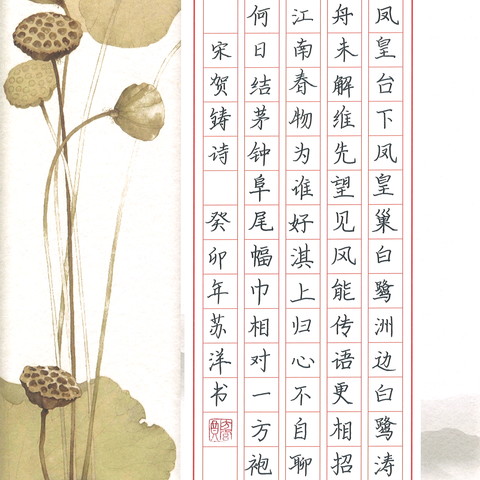 凤皇台下凤皇巢白鹭洲边白鹭涛
舟未解维先望见风能传语更相招
江南春物为谁好淇上归心不自聊
何日结茅钟阜尾幅巾相对一方袍
宋贺铸诗 癸卯年苏洋书